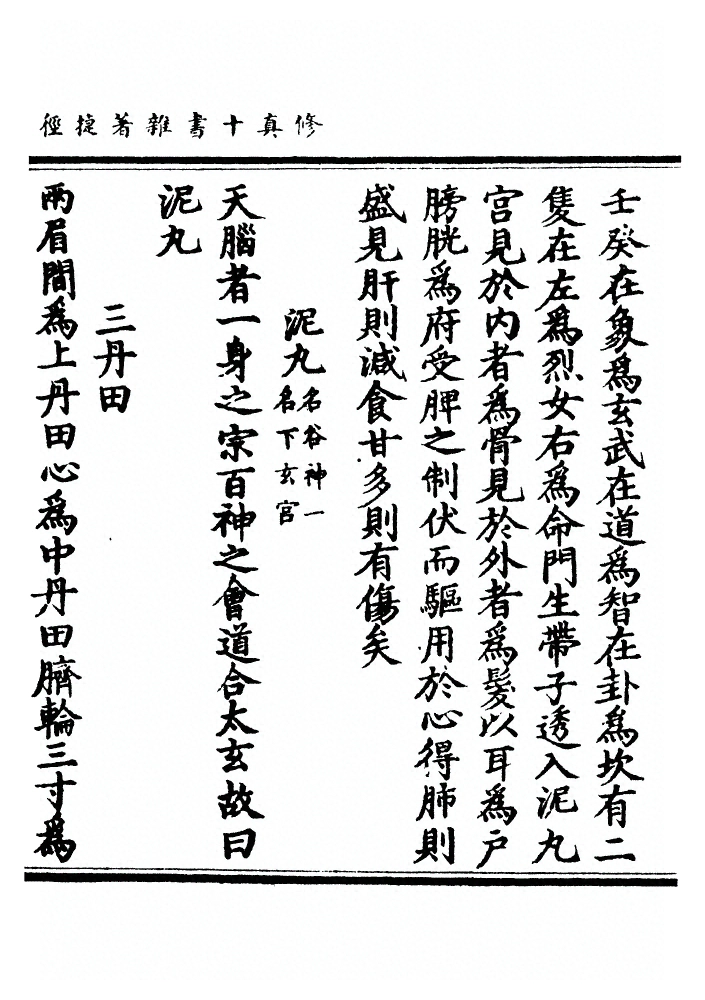 修真十書雜著捷徑
壬癸在象爲玄武在道爲智在卦爲坎有二
隻在左爲烈女右爲命門生帶子透入泥丸
宮見於内者爲骨見於外者爲髮以耳爲戶
膀胱爲府受脾之制伏而驅用於心得肺則
盛見肝則減食甘多則有傷矣
泥丸名谷神一
名下玄宮
天腦者一身之宗百神之會道合太玄故曰
泥丸
三丹田
兩眉間爲上丹田心爲中丹田臍輪三寸爲